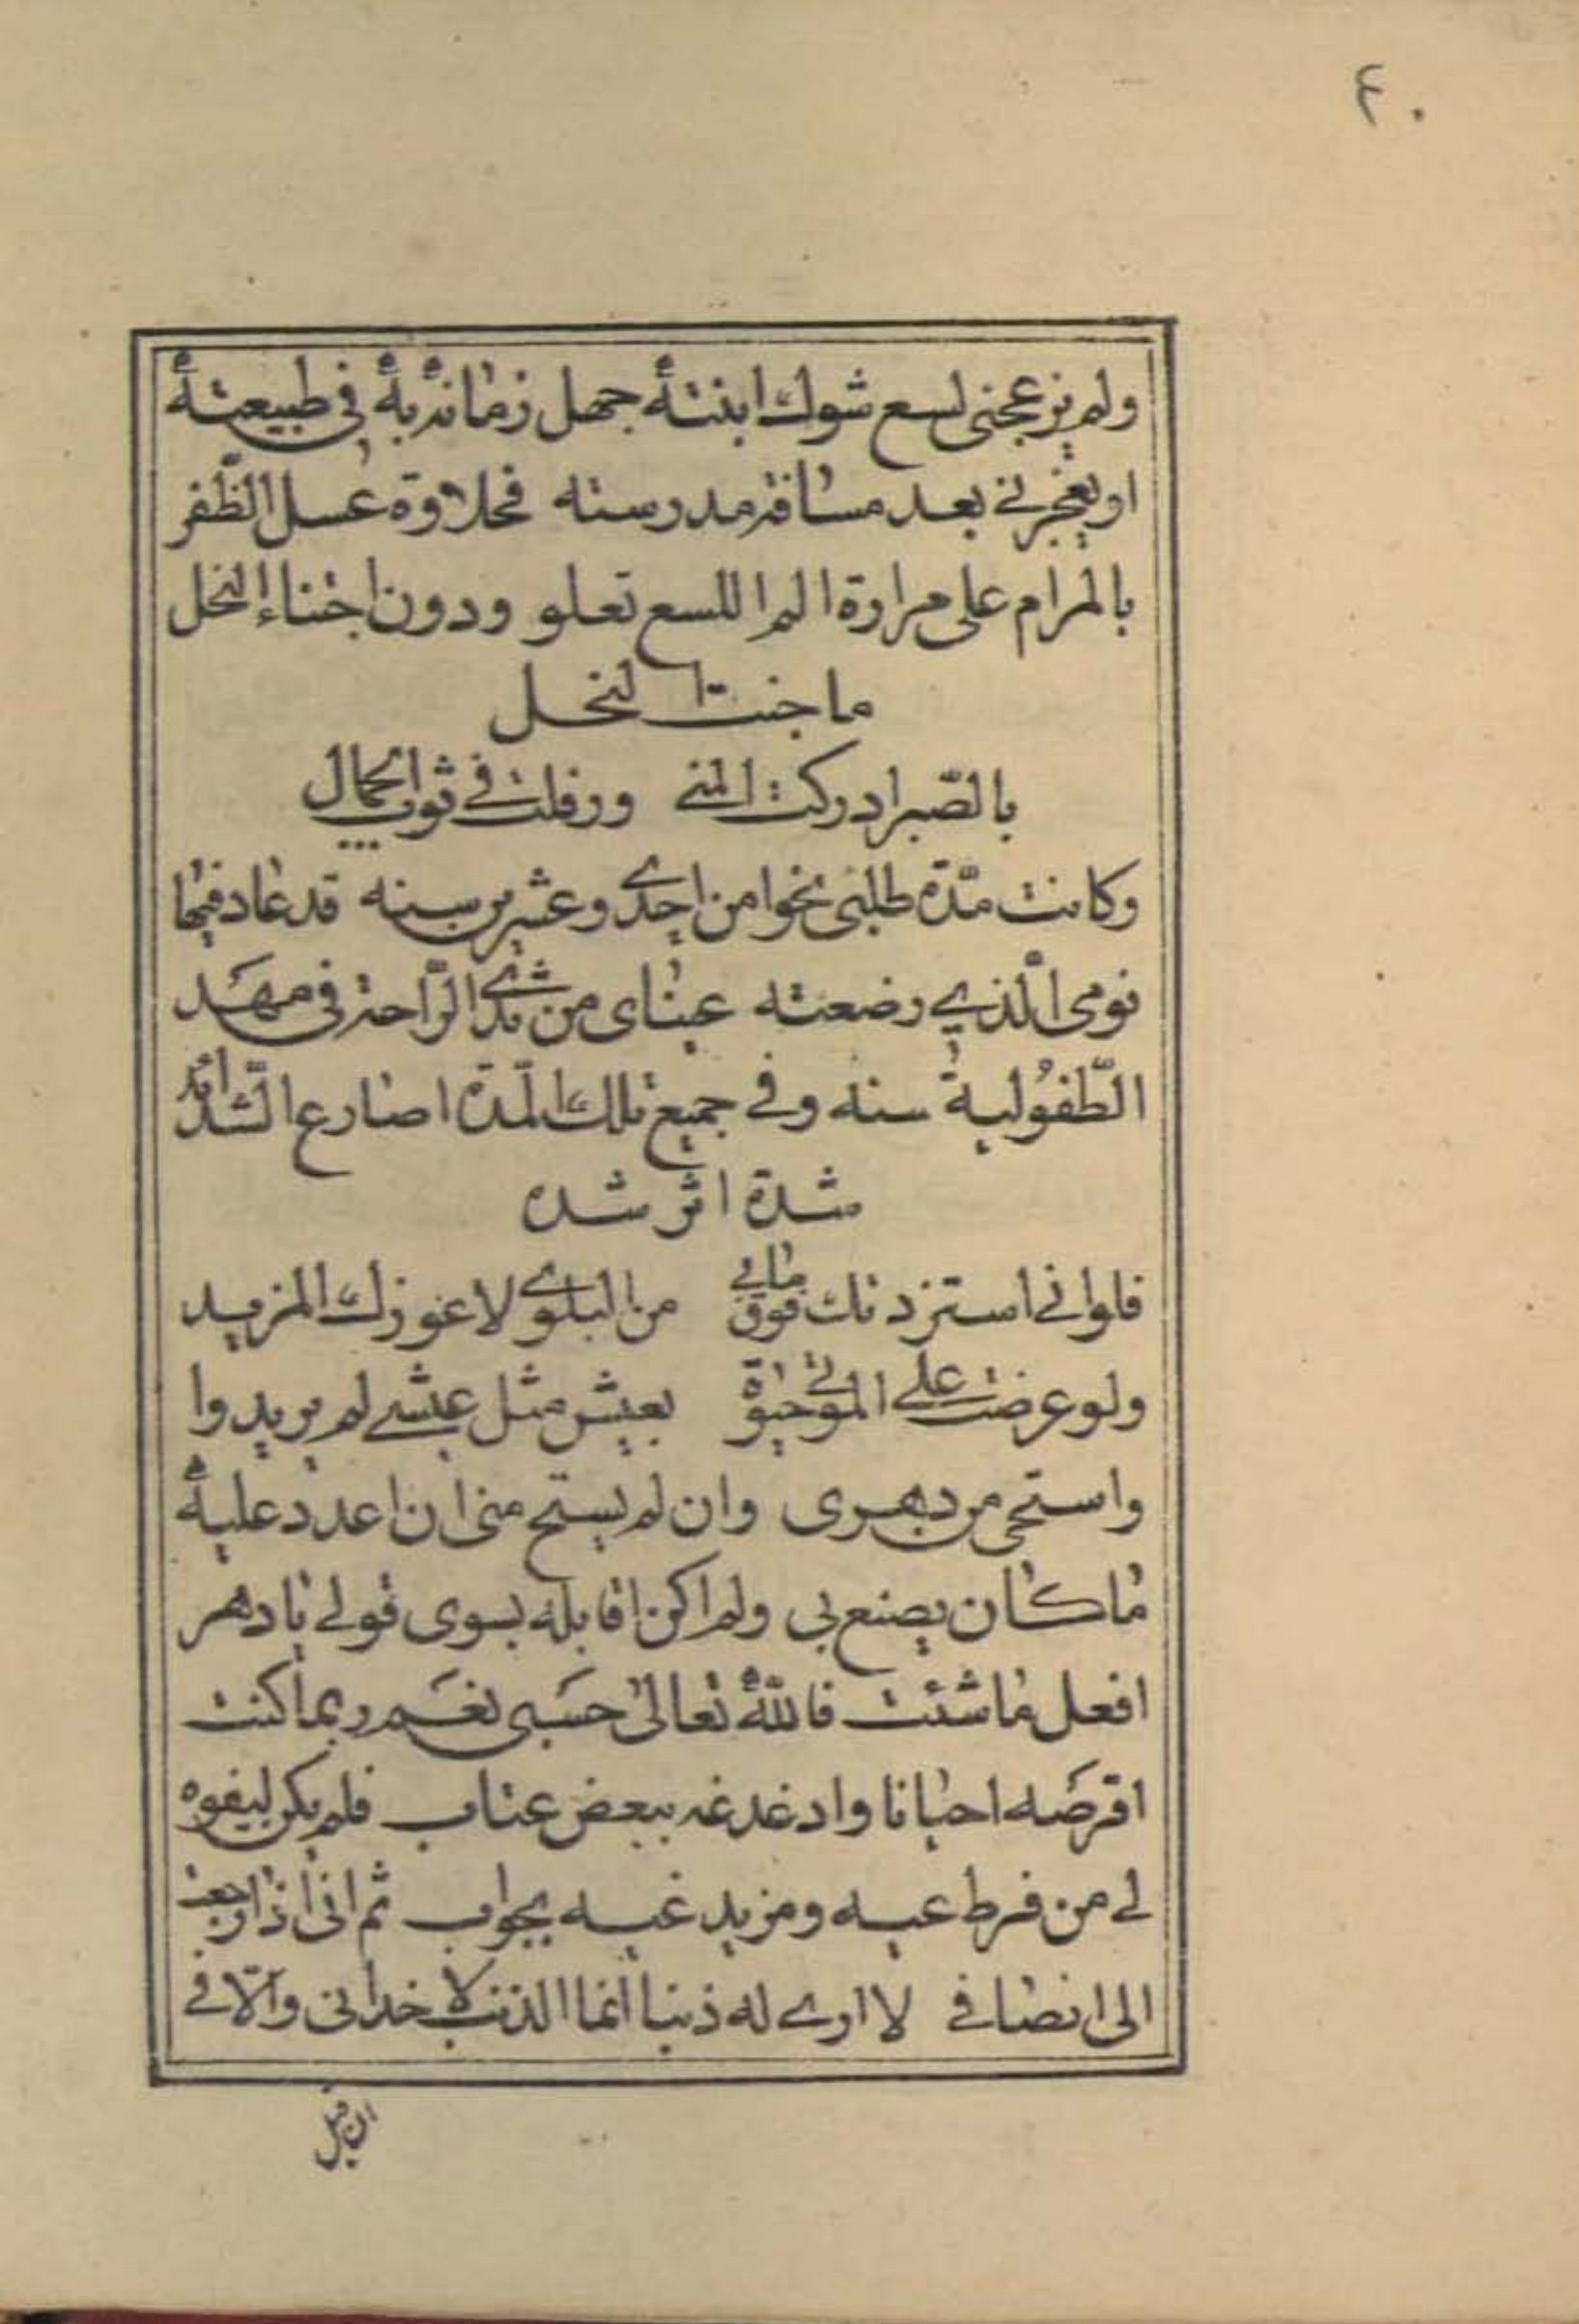 ٤٠
ولم يزعجني لسع شوك ابنته جهل زمانه به في طبيعته
او يضجرني بعد مسافة مدرسته فحلاوة عسل الظّفر
بالمرام على مرارة الم اللسع تعلو ودون اجتناء النحل
ما جنت النحل
بالصّبر ادركت المنى ورفلت في ثوب الجمال
وكانت مدّة طلبي نحوا من احدى وعشرين سنه قد عاد فيها
نومى الّذي رضعته عيناى من ثدى الرّاحة في مهد
الطّفوليه سنه وفي جميع تلك المدّة اصارع الشّدائد
شدة اثر شده
فلواني استزدتك فوق مابي من البلوى لاعوزك المزيد
ولو عرضت على الموتى حيوة بعيش مثل عيشي لم يريدوا
واستحى من دهرى وان لم يستح منى ان اعدد عليه
ما كان يصنع بى ولم اكن اقابله بسوى قولي يا دهر
افعل ما شئت فالله تعالى حسبى نعم ربما كنت
اقرصه احيانا وادغدغه ببعض عتاب فلم يكن ليفوه
لي من فرط عيه ومزيد غيه بجواب ثم انى اذا رجعت
الى انصافي لا ارى له ذنبا انما الذنب لاخدانى والّافي
ان قبل